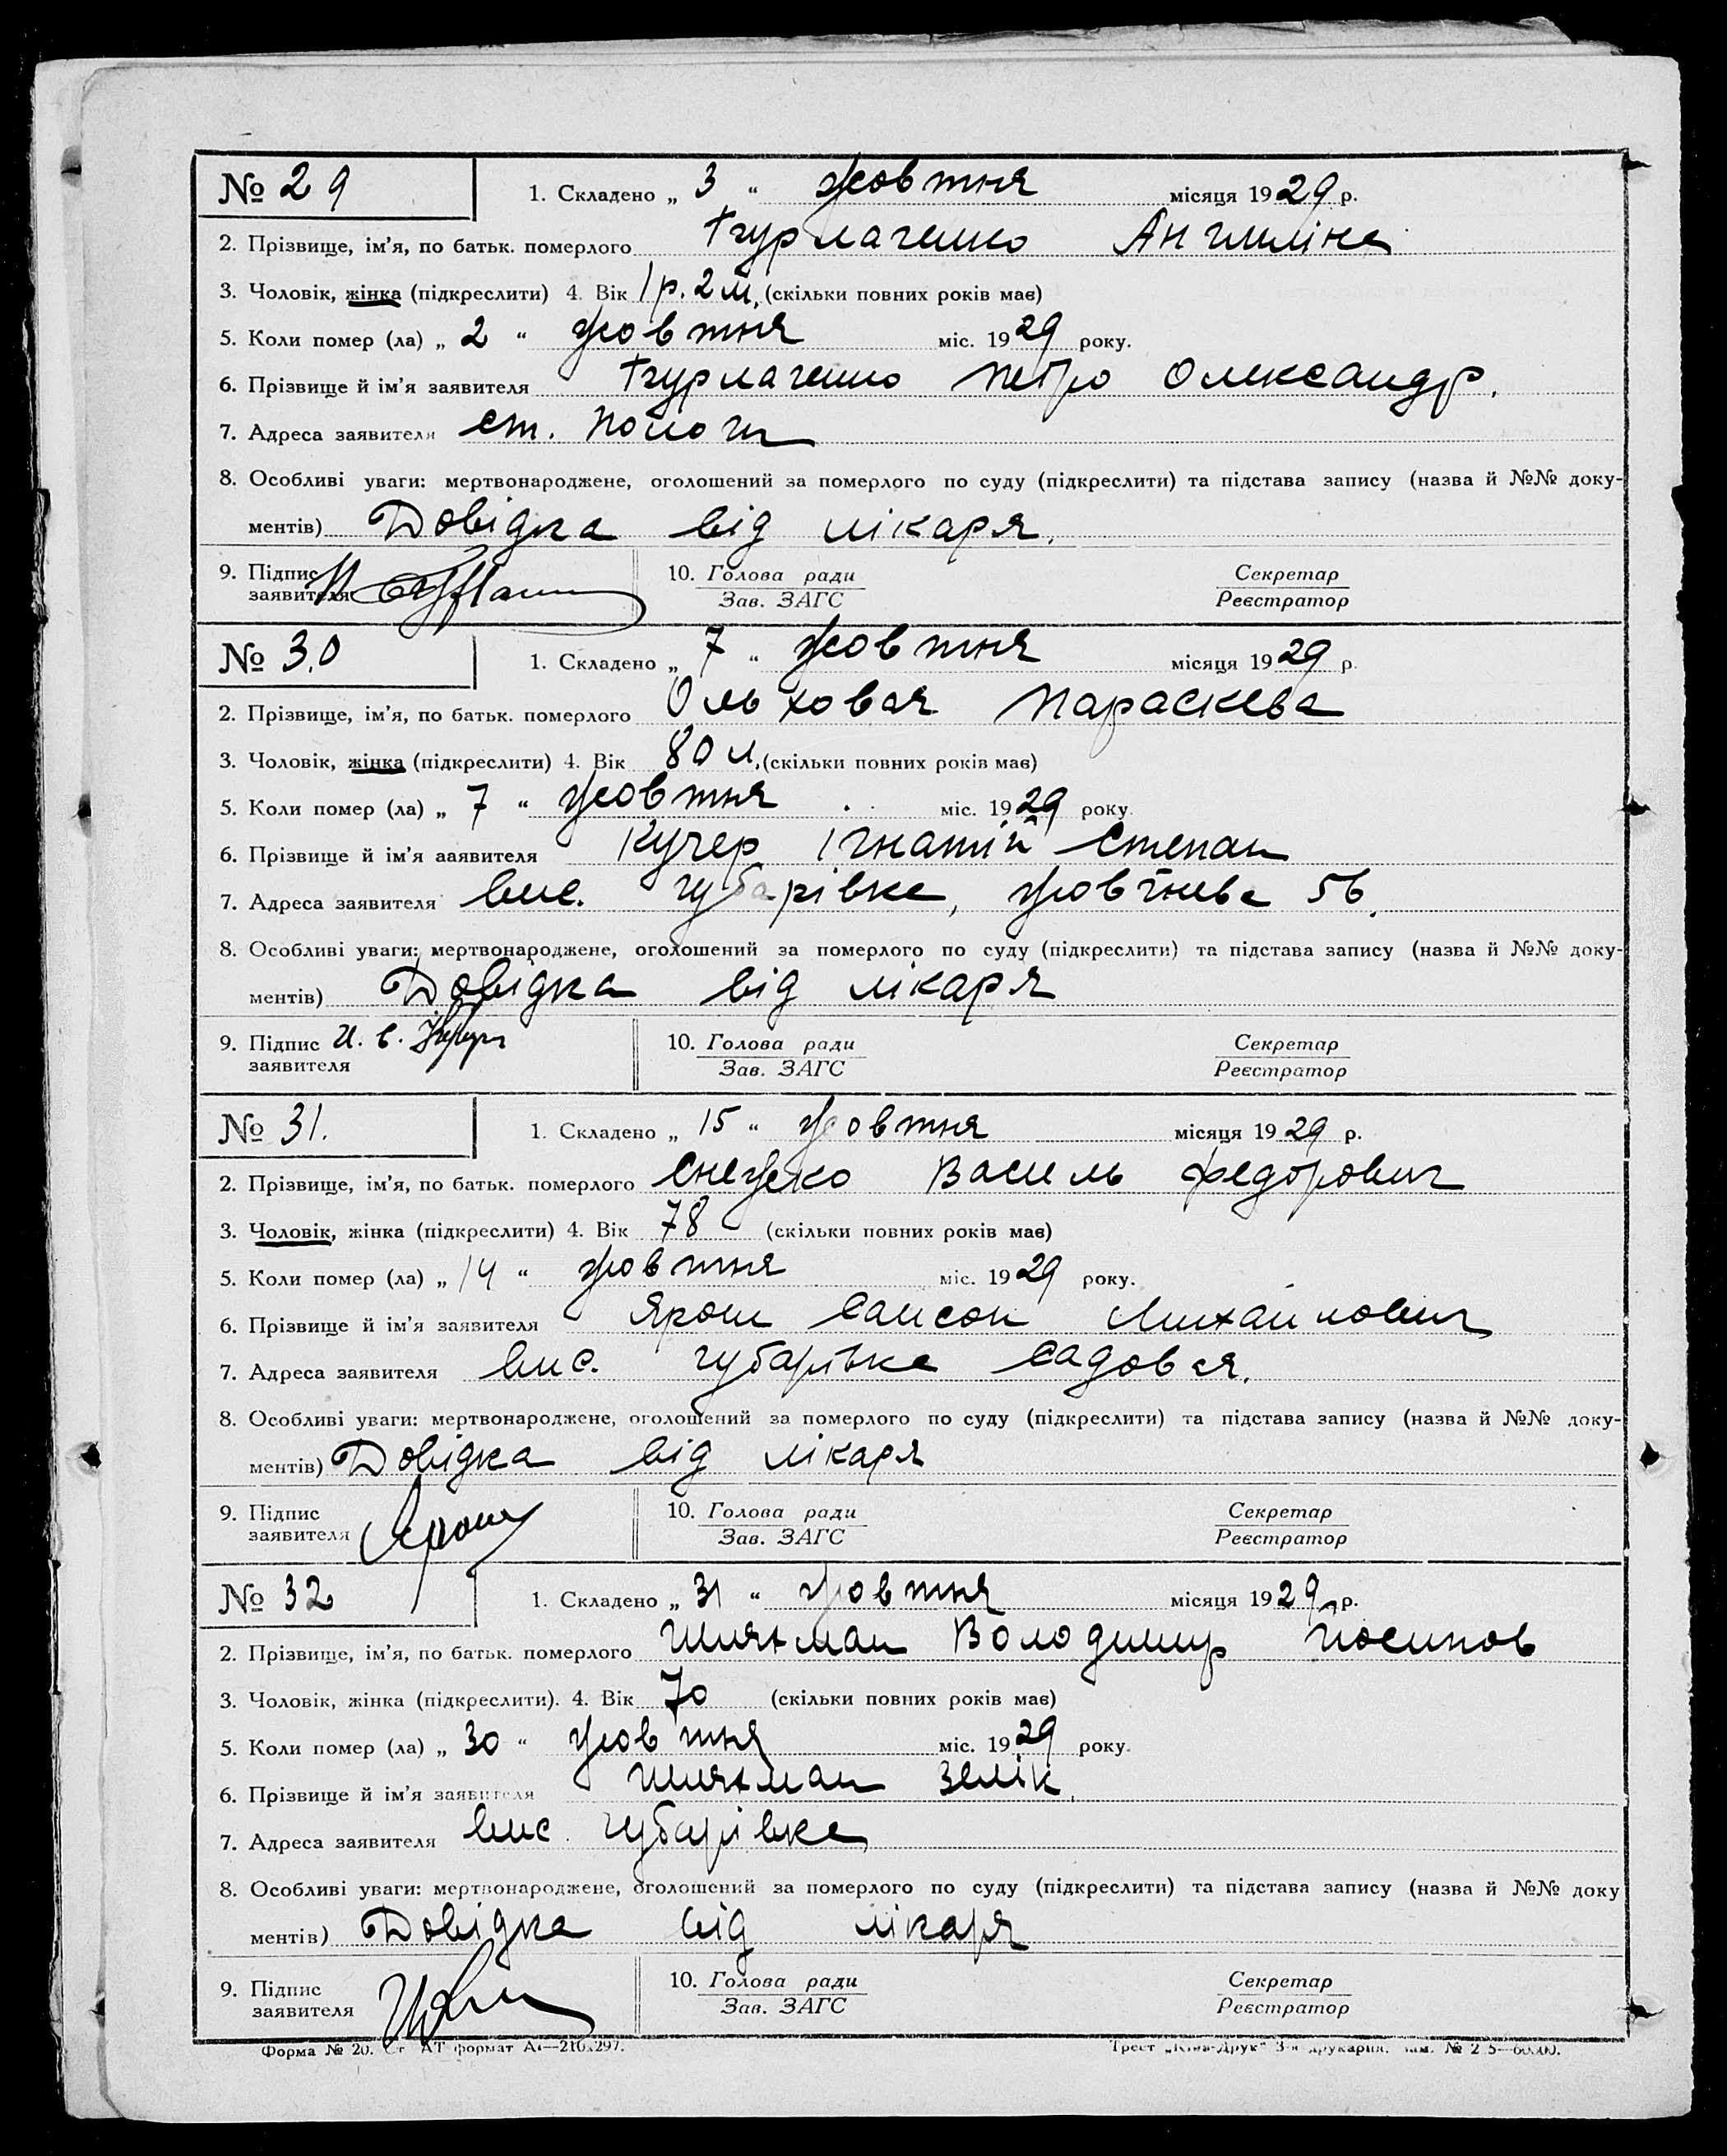 № 29 1. Складено „ 3 “ жовтня місяця 1929 р.
2. Прізвище, ім'я, по батьк. померлого Ангиліна
3. Чоловік, жінка (підкреслити) 4. Вік 1 р. 2 м. (скільки повних років має)
5. Коли помер (ла) „ 2 “ жовтня міс. 1929 року.
6. Прізвище й ім'я заявителя Петро Олександр.
7. Адреса заявителя ст. Пологи
8. Особливі уваги: мертвонароджене, оголошений за померлого по суду (підкреслити) та підстава запису (назва й №№ доку-
ментів) Довідка від лікаря.
9. Підпис заявителя 10. Голова ради Секретар
Зав. ЗАГС Реєстратор
№ 30 1. Складено „ 7 “ жовтня місяця 1929 р.
2. Прізвище, ім'я, по батьк. померлого Ольховая Параскева
3. Чоловік, жінка (підкреслити) 4. Вік 80 л. (скільки повних років має)
5. Коли помер (ла) „ 7 “ жовтня міс. 1929 року.
6. Прізвище й ім'я аявителя Кучер Ігнатій Степан
7. Адреса заявителя вис. Губарівка, Жовтнева 56.
8. Особливі уваги: мертвонароджене, оголошений за померлого по суду (підкреслити) та підстава запису (назва й №№ доку-
ментів) Довідка від лікаря
9. Підпис заявителя И. С. Кучер 10. Голова ради Секретар
Зав. ЗАГС Реєстратор
№ 31. 1. Складено „ 15 “ жовтня місяця 1929 р.
2. Прізвище, ім'я, по батьк. померлого Василь Федорович
3. Чоловік, жінка (підкреслити) 4. Вік 78 (скільки повних років має)
5. Коли помер (ла) „ 14 “ жовтня міс. 1929 року.
6. Прізвище й ім'я заявителя Ярош Самсон Михайлович
7. Адреса заявителя вис. Губарівка Садовая.
8. Особливі уваги: мертвонароджене, оголошений за померлого по суду (підкреслити) та підстава запису (назва й №№ доку-
ментів) Довідка від лікаря
9. Підпис заявителя Ярош 10. Голова ради Секретар
Зав. ЗАГС Реєстратор
№ 32 1. Складено „ 31 “ жовтня місяця 1929 р.
2. Прізвище, ім'я, по батьк. померлого Шляхман Володимир Йосипов
3. Чоловік, жінка (підкреслити). 4. Вік 70 (скільки повних років має)
5. Коли помер (ла) „ 30 “ жовтня міс. 1929 року.
6. Прізвище й ім'я заявителя Шляхман Зелік.
7. Адреса заявителя вис. Губарівка
8. Особливі уваги: мертвонароджене, оголошений за померлого по суду (підкреслити) та підстава запису (назва й №№ доку
ментів) Довідка від лікаря
9. Підпис заявителя 10. Голова ради Секретар
Зав. ЗАГС Реєстратор
Форма № 20. Ст. АТ формат А4—210x297. Трест „Київ-Друк“ 3-я друкарня.